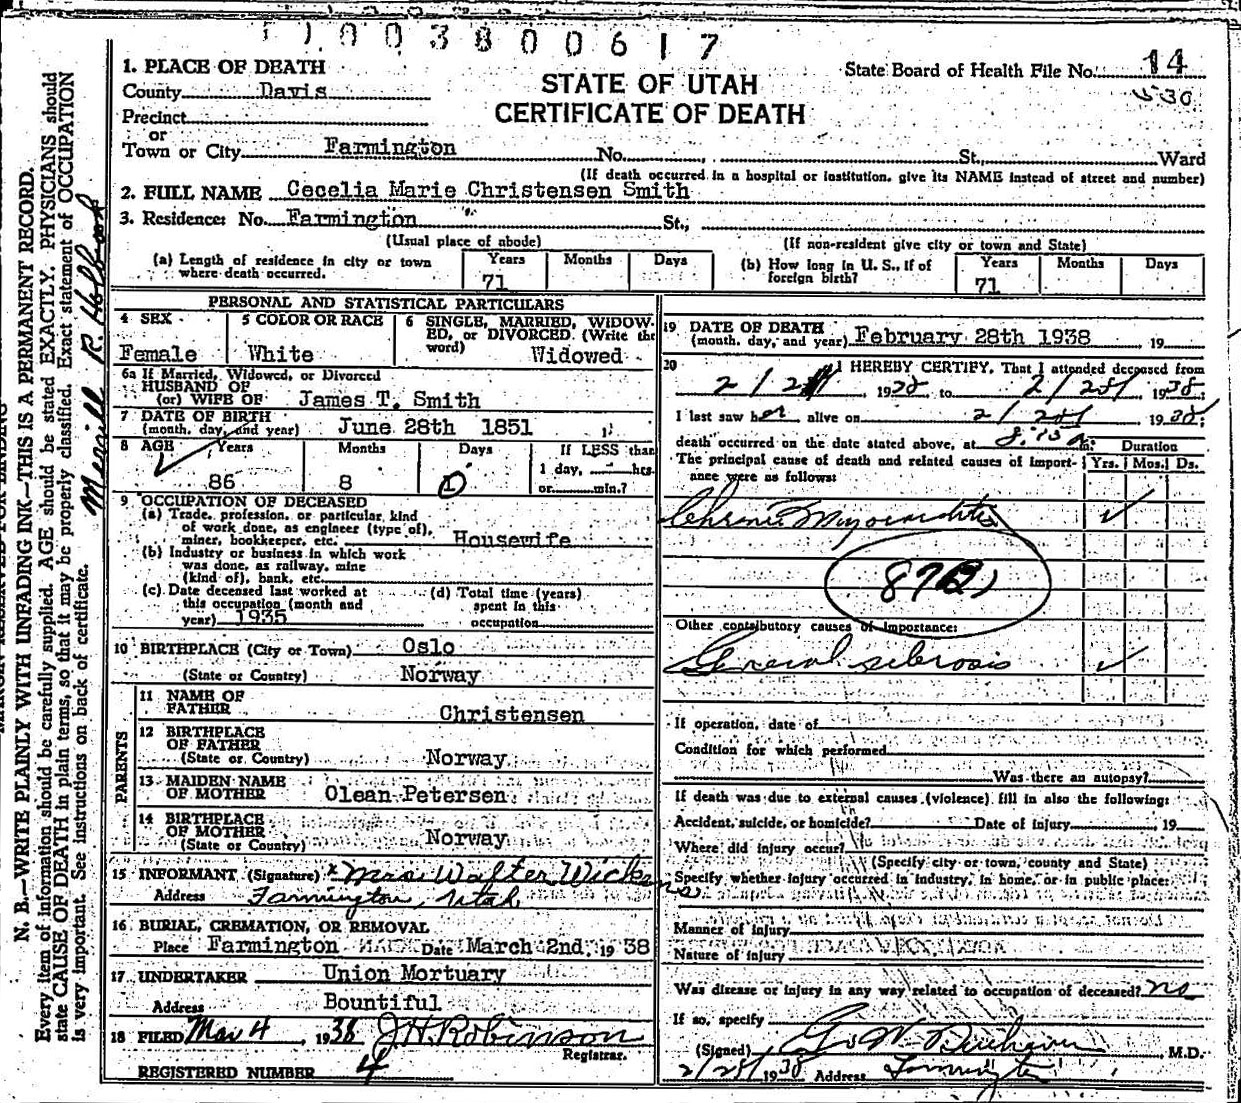 1003800617
1. PLACE OF DEATH
County Davis
Precinct
or
Town or City Farmington No. , St., Ward
STATE OF UTAH
CERTIFICATE OF DEATH
State Board of Health File No. 14
530
(If death occurred in a hospital or institution, give its NAME instead of street and number)
2. FULL NAME Cecelia Marie Christensen Smith
3. Residence: No. Farmington St.,
(Usual place of abode) (If non-resident give city or town and State)
(a) Length of residence in city or town where death occurred. Years 71 Months Days
(b) How long in U. S., if of foreign birth? Years 71 Months Days
PERSONAL AND STATISTICAL PARTICULARS
4 SEX Female
5 COLOR OR RACE White
6 SINGLE, MARRIED, WIDOWED, or DIVORCED (Write the word) Widowed
6a If Married, Widowed, or Divorced
HUSBAND OF
(or) WIFE OF James T. Smith
7 DATE OF BIRTH
(month, day, and year) June 28th 1851
8 AGE Years 86 Months 8 Days 0 If LESS than
1 day, hrs.
or min.?
9 OCCUPATION OF DECEASED
(a) Trade, profession, or particular kind
of work done, as engineer (type of),
miner, bookkeeper, etc. Housewife
(b) Industry or business in which work
was done, as railway, mine
(kind of), bank, etc.
(c) Date deceased last worked at
this occupation (month and
year) 1935
(d) Total time (years)
spent in this
occupation
10 BIRTHPLACE (City or Town) Oslo
(State or Country) Norway
PARENTS
11 NAME OF
FATHER Christensen
12 BIRTHPLACE
OF FATHER
(State or Country) Norway
13 MAIDEN NAME
OF MOTHER Olean Petersen
14 BIRTHPLACE
OF MOTHER
(State or Country) Norway
15 INFORMANT (Signature) x Mrs. Walter Wickens
Address Farmington, Utah
16 BURIAL, CREMATION, OR REMOVAL
Place Farmington Date March 2nd. 19 38
17 UNDERTAKER Union Mortuary
Address Bountiful
18 FILED Mar 4, 1938 J H Robinson
Registrar.
REGISTERED NUMBER 4
19 DATE OF DEATH
(month, day, and year) February 28th 1938 19
20 I HEREBY CERTIFY, That I attended deceased from
1938 to 2/28/ 1938
I last saw her alive on 2/28/ 1938;
death occurred on the date stated above, at 8:15 m.
The principal cause of death and related causes of importance were as follows: Duration
Yrs. Mos. Ds.
Chronic Myocarditis
87B
Other contributory causes of importance:
General sclerosis
If operation, date of
Condition for which performed
Was there an autopsy?
If death was due to external causes (violence) fill in also the following:
Accident, suicide, or homicide? Date of injury , 19
Where did injury occur?
(Specify city or town, county and State)
Specify whether injury occurred in industry, in home, or in public place:
Manner of injury
Nature of injury
Was disease or injury in any way related to occupation of deceased? no
If so, specify
(Signed) M.D.
2/28/ 1938 Address Farmington
N. B.—WRITE PLAINLY WITH UNFADING INK—THIS IS A PERMANENT RECORD.
Every item of information should be carefully supplied. AGE should be stated EXACTLY. PHYSICIANS should
state CAUSE OF DEATH in plain terms, so that it may be properly classified. Exact statement of OCCUPATION
is very important. See instructions on back of certificate.
Merrill R.